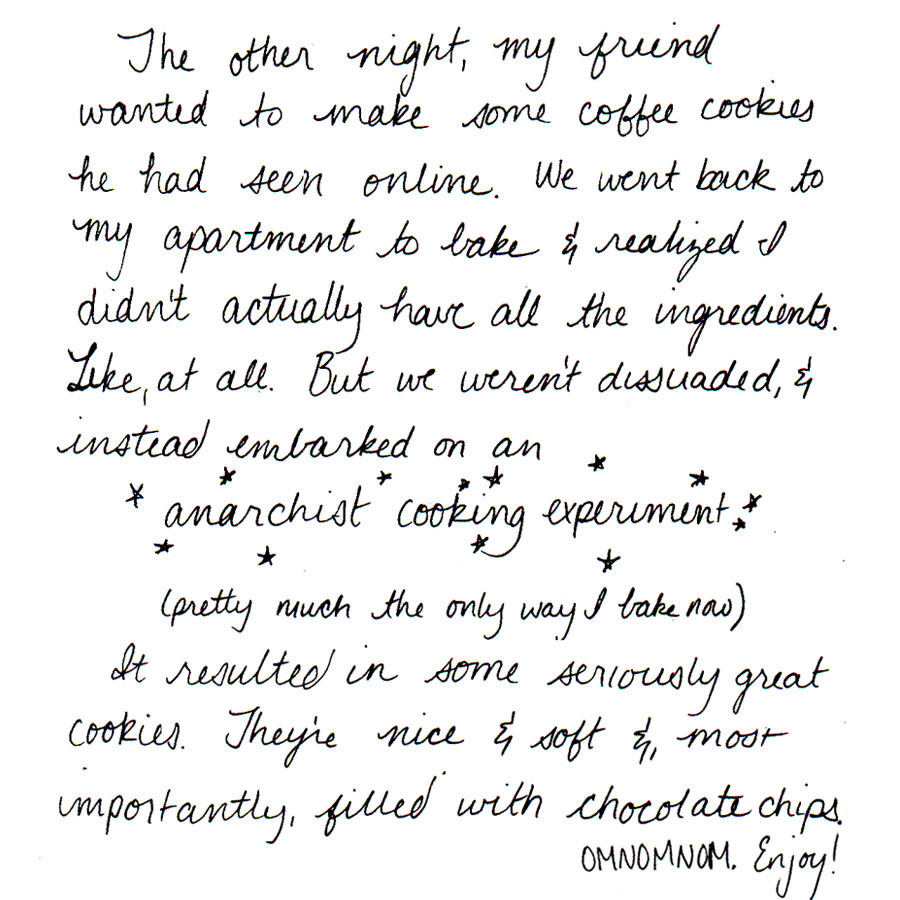 The other night, my friend
wanted to make some coffee cookies
he had seen online. We went back to
my apartment to bake & realized I
didn't actually have all the ingredients.
Like, at all. But we weren't dissuaded, &
instead embarked on an
anarchist cooking experiment.
(pretty much the only way I bake now)
It resulted in some seriously great
cookies. They're nice & soft &, most
importantly, filled with chocolate chips.
OMNOMNOM. Enjoy!